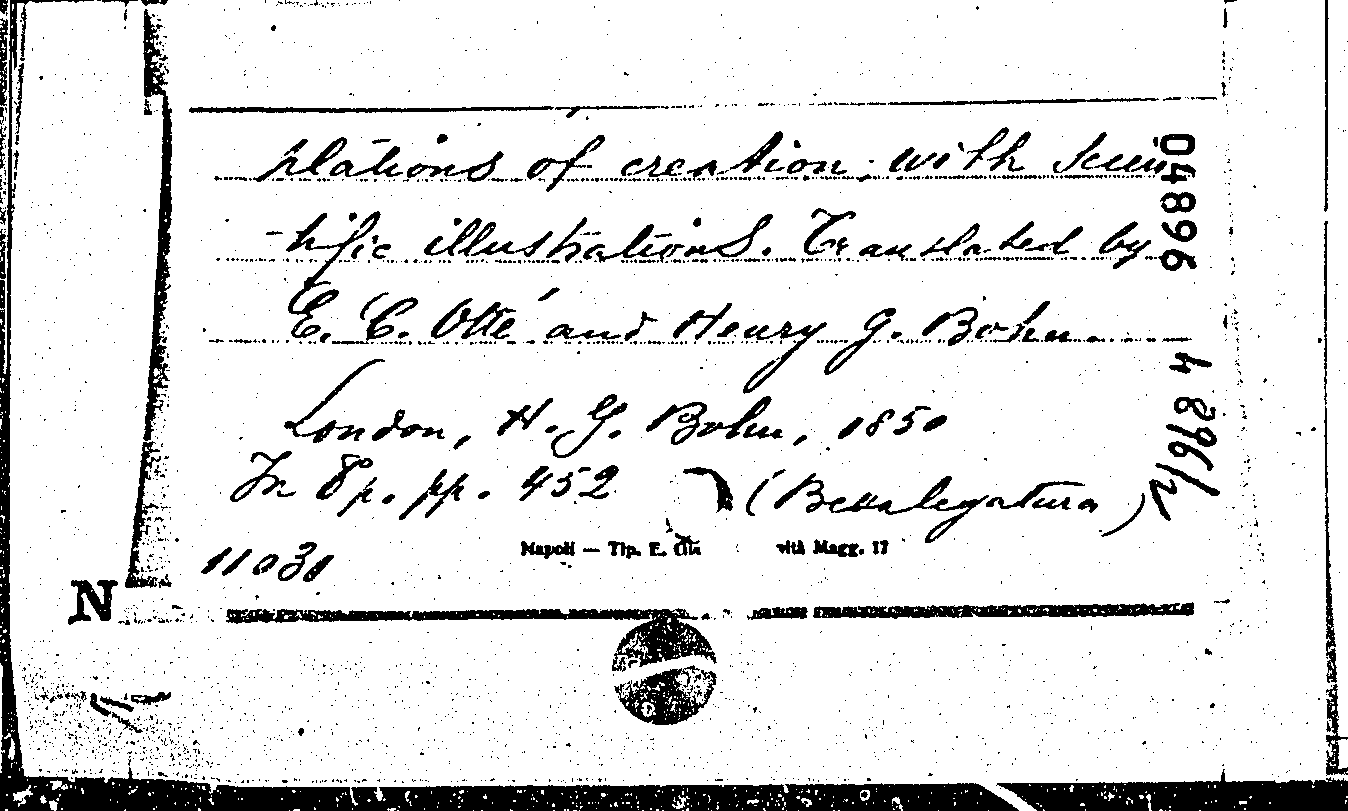 plations of creation; with scien
-tific illustrations. Translated by
E. C. Otté and Henry G. Bohn.
London, H. G. Bohn, 1850
In 8p. pp. 452 (Bella legatura)
Napoli — Tip. E. Magg. 17
11031
N
04896
4896/2